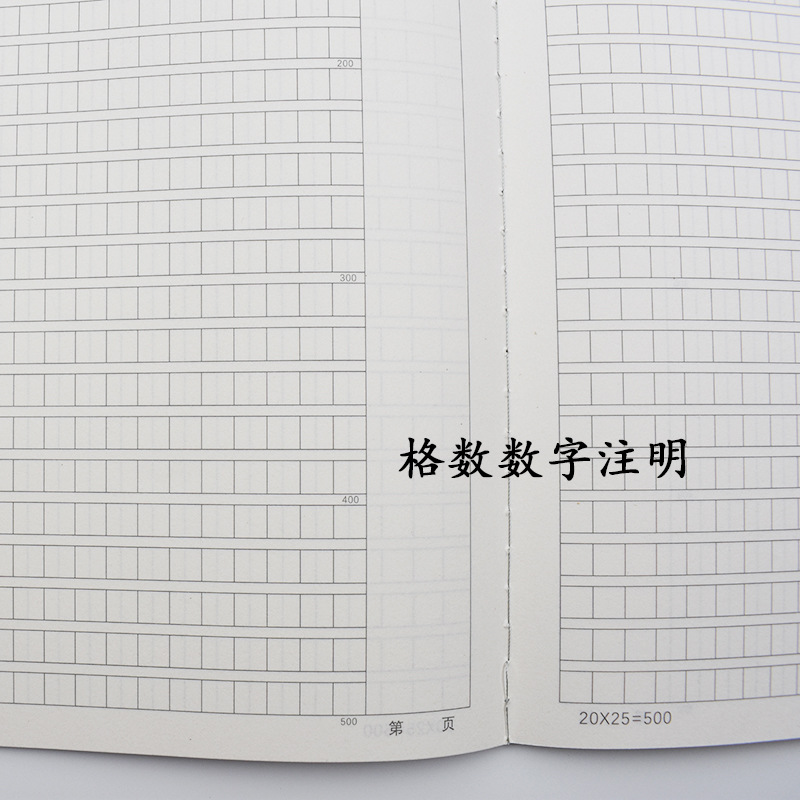 200
300
格数数字注明
400
500
第 页
20X25=500